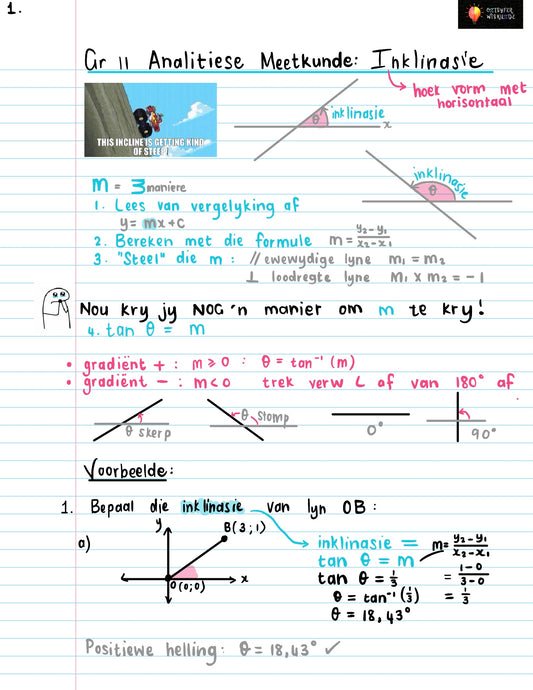 1.
OSTENDER
WISKUNDE
Gr 11 Analitiese Meetkunde: Inklinasie
hoek vorm met
horisontaal
THIS INCLINE IS GETTING KIND
OF STEEP!
θ
inklinasie
x
inklinasie
θ
m = 3 maniere
1. Lees van vergelyking af
y = mx + c
2. Bereken met die formule m = y₂-y₁/x₂-x₁
3. "Steel" die m : // ewewydige lyne m₁ = m₂
⊥ loodregte lyne m₁ x m₂ = -1
Nou kry jy NOG 'n manier om m te kry!
4. tan θ = m
• gradiënt + : m ⩾ 0 : θ = tan⁻¹ (m)
• gradiënt - : m < 0 trek verw ∠ af van 180° af
θ skerp
θ stomp
0°
90°
Voorbeelde:
1. Bepaal die inklinasie van lyn OB :
a)
y
B(3;1)
O(0;0)
x
inklinasie =
tan θ = m
tan θ = 1/3
θ = tan⁻¹(1/3)
θ = 18,43°
m = y₂-y₁/x₂-x₁
= 1-0/3-0
= 1/3
Positiewe helling: θ = 18,43° ✓